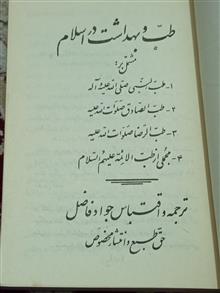 طبّ و بهداشت در اسلام
مشتمل بر:
۱- طبّ النّبی صلّی الله علیه و آله
۲- طبّ الصّادق صلوات الله علیه
۳- طبّ الرّضا صلوات الله علیه
۴- مجملی از طبّ الائمّة علیهم السّلام
ترجمه و اقتباس جواد فاضل
حق طبع و انتشار مخصوص